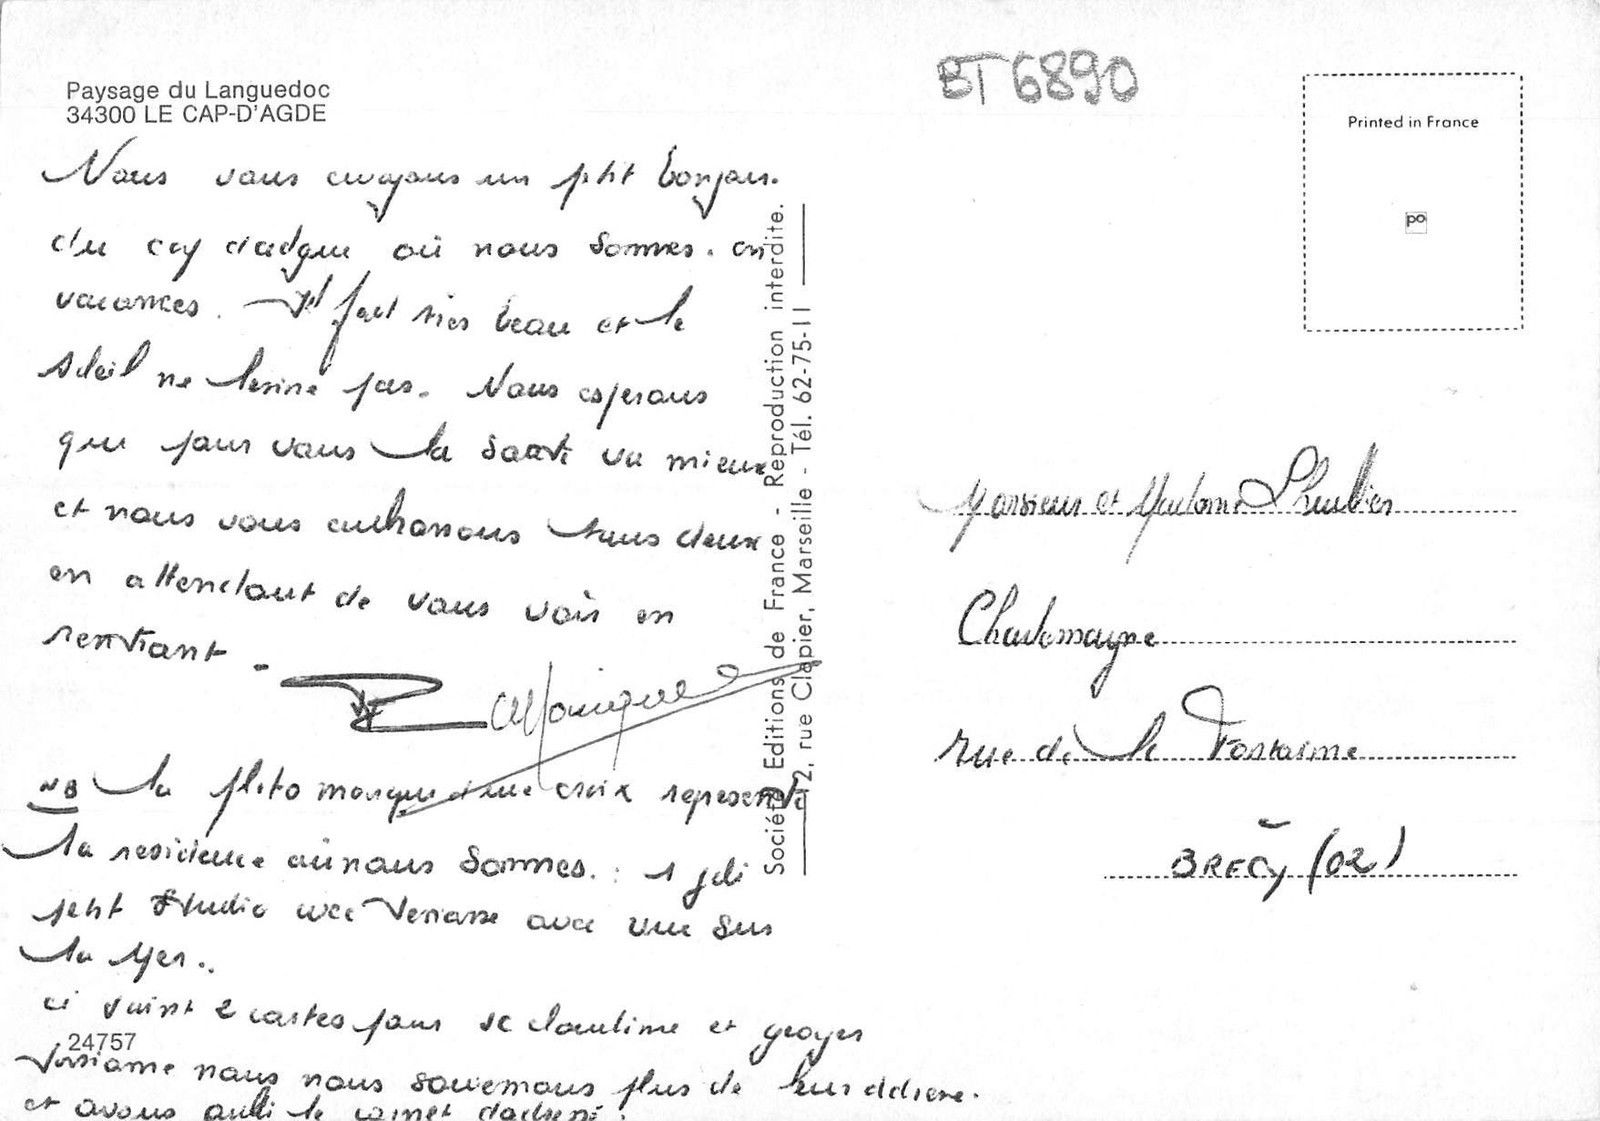 Paysage du Languedoc
34300 LE CAP-D'AGDE
BT 6890
Printed in France
po
Nous vous envoyons un ptit bonjour
du cap d'adgue où nous sommes. en
vacances. Il fait très beau et le
soleil ne termine pas. Nous esperons
que pour vous la santé va mieux
et nous vous embrassons tous deux
en attendant de vous voir en
rentrant.
Monique
NB la photo marqué d'une croix represente
la residence où nous sommes. : 1 joli
petit studio avec terrasse avec vue sur
la Mer..
ci joint 2 cartes pour et georges
24757
nous nous souvenons plus de leur addresse.
et avons oublié le carnet d'adresse.
Société Editions de France - Reproduction interdite.
2, rue Clapier, Marseille - Tél. 62-75-11
Monsieur et Madame Lhuillier
Charlemagne
rue de la Fontaine
BRECY (02)